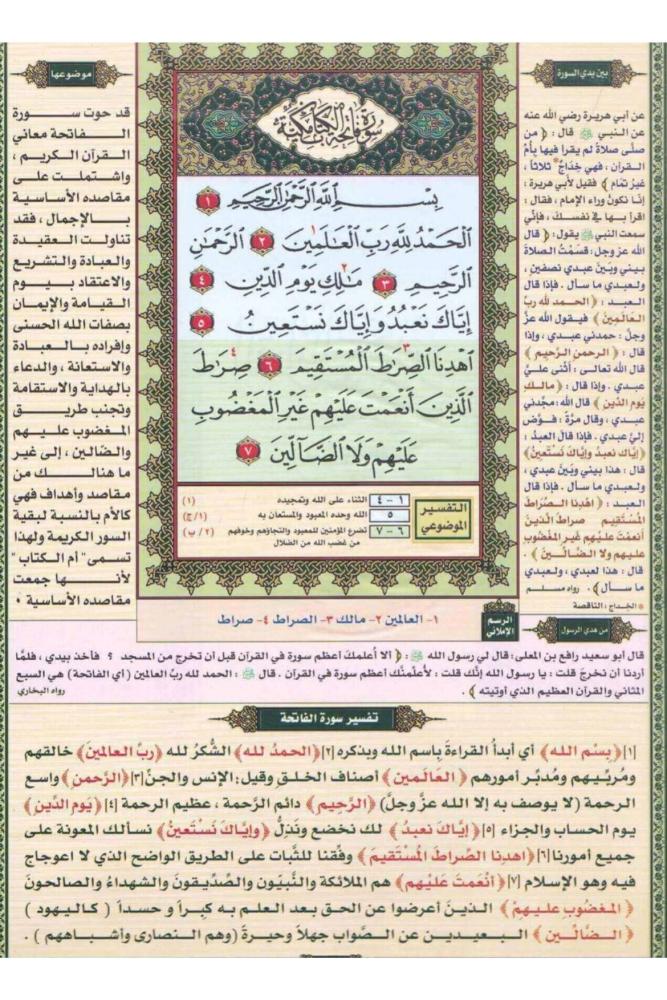 بين يدي السورة
عن أبي هريرة رضي الله عنه
عن النبي ﷺ قال: ﴿ من
صلَّى صلاةً لم يقرأ فيها بأُمِّ
القرآن، فهي خِداجٌ* ثلاثاً،
غيرُ تمام ﴾ فقيل لأبي هريرة:
إنَّا نكونُ وراء الإمام، فقال:
اقرأ بها في نفسك، فإنِّي
سمعت النبي ﷺ يقول: ﴿ قال
الله عز وجل: قسَمْتُ الصلاةَ
بيني وبَينَ عبدي نصفين،
ولعبدي ما سأل. فإذا قال
العبد: ﴿ الحمد لله ربِّ
العالَمِينَ ﴾ فيقول الله عزَّ
وجلَّ: حمدني عبدي، وإذا
قال: ﴿ الرحمن الرَّحيم ﴾
قال الله تعالى: أثنى عليَّ
عبدي. وإذا قال: ﴿ مالك
يَوم الدِّين ﴾ قال الله: مجَّدني
عبدي، وقال مرَّةً: فوَّض
إليَّ عبدي. فإذا قال العبدُ:
﴿ إيَّاك نعبدُ وإيَّاك نَسْتَعينُ ﴾
قال: هذا بيني وبَين عبدي،
ولعبدي ما سأل. فإذا قال
العبد: ﴿ اهدِنا الصِّراطَ
المُستَقيمَ صراطَ الذينَ
أنعمتَ عليهم غير المغضوب
عليهم ولا الضالِّين ﴾.
قال: هذا لعبدي، ولعبدي
ما سأل ﴾. رواه مسلم
* الخداج: الناقصة
سورة فاتحة الكتاب مكية
بِسْمِ اللَّهِ الرَّحْمَٰنِ الرَّحِيمِ ١
الْحَمْدُ لِلَّهِ رَبِّ الْعَٰلَمِينَ ٢ الرَّحْمَٰنِ
الرَّحِيمِ ٣ مَٰلِكِ يَوْمِ الدِّينِ ٤
إِيَّاكَ نَعْبُدُ وَإِيَّاكَ نَسْتَعِينُ ٥
اهْدِنَا الصِّرَٰطَ الْمُسْتَقِيمَ ٦ صِرَٰطَ
الَّذِينَ أَنْعَمْتَ عَلَيْهِمْ غَيْرِ الْمَغْضُوبِ
عَلَيْهِمْ وَلَا الضَّآلِّينَ ٧
التفسير الموضوعي
١ - ٤ الثناء على الله وتمجيده (١)
٥ الله وحده المعبود والمستعان به (١/ج)
٦ - ٧ تضرع المؤمنين للمعبود والتجاؤهم وخوفهم (٢/ب)
من غضب الله من الضلال
موضوعها
قد حوت سورة
الفاتحة معاني
القرآن الكريم،
واشتملت على
مقاصده الأساسية
بالإجمال، فقد
تناولت العقيدة
والعبادة والتشريع
والاعتقاد بيوم
القيامة والإيمان
بصفات الله الحسنى
وإفراده بالعبادة
والاستعانة، والدعاء
بالهداية والاستقامة
وتجنب طريق
المغضوب عليهم
والضالين، إلى غير
ما هنالك من
مقاصد وأهداف فهي
كالأم بالنسبة لبقية
السور الكريمة ولهذا
تسمى" أم الكتاب "
لأنها جمعت
مقاصده الأساسية .
الرسم الإملائي
١- العالمين ٢- مالك ٣- الصراط ٤- صراط
من هدي الرسول
قال أبو سعيد رافع بن المعلى: قال لي رسول الله ﷺ: ﴿ ألا أعلمك أعظم سورة في القرآن قبل أن تخرج من المسجد ؟ فأخذ بيدي، فلمَّا
أردنا أن نخرجَ قلت: يا رسول الله إنَّك قلت: لأُعلِّمنَّك أعظم سورة في القرآن. قال ﷺ: الحمد لله ربِّ العالمين (أي الفاتحة) هي السبع
المثاني والقرآن العظيم الذي أوتيته ﴾. رواه البخاري
تفسير سورة الفاتحة
[١] ﴿بِسْمِ الله﴾ أي أبدأُ القراءةَ باسم الله وبذكره [٢]﴿الحمدُ لله﴾ الشُّكرُ لله ﴿ربِّ العالمَين﴾ خالقهم
ومُربِّيهم ومُدبِّر أمورهم ﴿العَالَمين﴾ أصناف الخلق وقيل: الإنس والجنُّ [٣]﴿الرَّحمنِ﴾ واسع
الرحمة (لا يوصف به إلا الله عزَّ وجلَّ) ﴿الرَّحيمِ﴾ دائم الرَّحمة، عظيم الرحمة [٤] ﴿يَوم الدِّينِ﴾
يوم الحساب والجزاء [٥] ﴿إيَّاكَ نعبدُ﴾ لك نخضع ونَذِلُّ ﴿وإيَّاكَ نَسْتَعينُ﴾ نسألك المعونة على
جميع أمورنا [٦] ﴿اهدِنا الصِّراطَ المُستَقيمَ﴾ وفِّقنا للثَّبات على الطريق الواضح الذي لا اعوجاج
فيه وهو الإسلام [٧] ﴿أنْعَمتَ عَليْهم﴾ هم الملائكة والنَّبيُّون والصِّدِّيقون والشهداءُ والصالحون
﴿المَغضُوبِ عليهمْ﴾ الذينَ أعرضوا عن الحق بعد العلم به كِبراً و حسداً ( كاليهود )
﴿الضَّالِّين﴾ البعيدين عن الصَّواب جهلاً وحيرةً (وهم النصارى وأشباههم ) .